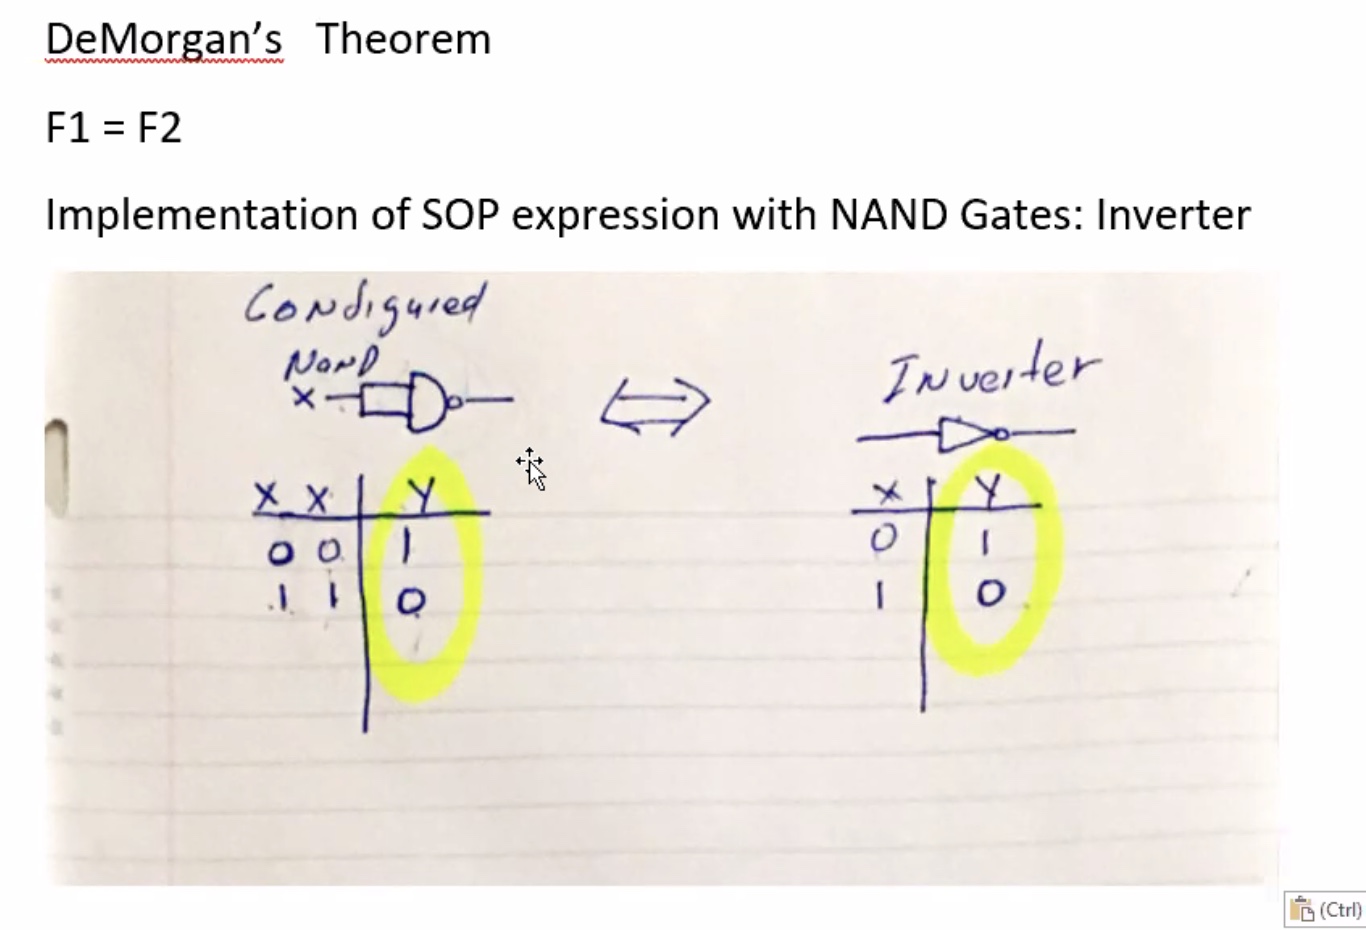 DeMorgan’s Theorem
F1 = F2
Implementation of SOP expression with NAND Gates: Inverter
Condigured
NAND
X
Inverter
X X Y
0 0 1
1 1 0
X Y
0 1
1 0
(Ctrl)